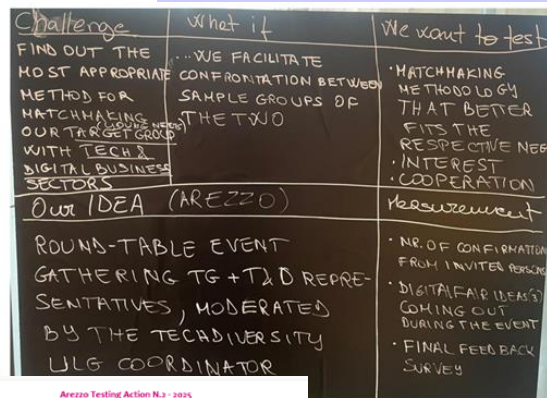 Challenge
FIND OUT THE
MOST APPROPRIATE
METHOD FOR
MATCHMAKING
OUR TARGET GROUP
WITH TECH &
DIGITAL BUSINESS
SECTORS
What if
...WE FACILITATE
CONFRONTATION BETWEEN
SAMPLE GROUPS OF
THE TWO
We want to test
• MATCHMAKING
METHODOLOGY
THAT BETTER
FITS THE
RESPECTIVE NEE
• INTEREST
• COOPERATION
Our IDEA (AREZZO)
ROUND-TABLE EVENT
GATHERING TG + T&D REPRE-
SENTATIVES, MODERATED
BY THE TECHDIVERSITY
ULG COORDINATOR
Measurement
• NR. OF CONFIRMATION
FROM INVITED PERSONS
• DIGITALFAIR IDEAS(3)
COMING OUT
DURING THE EVENT
• FINAL FEEDBACK
SURVEY
Arezzo Testing Action N.2 - 2025